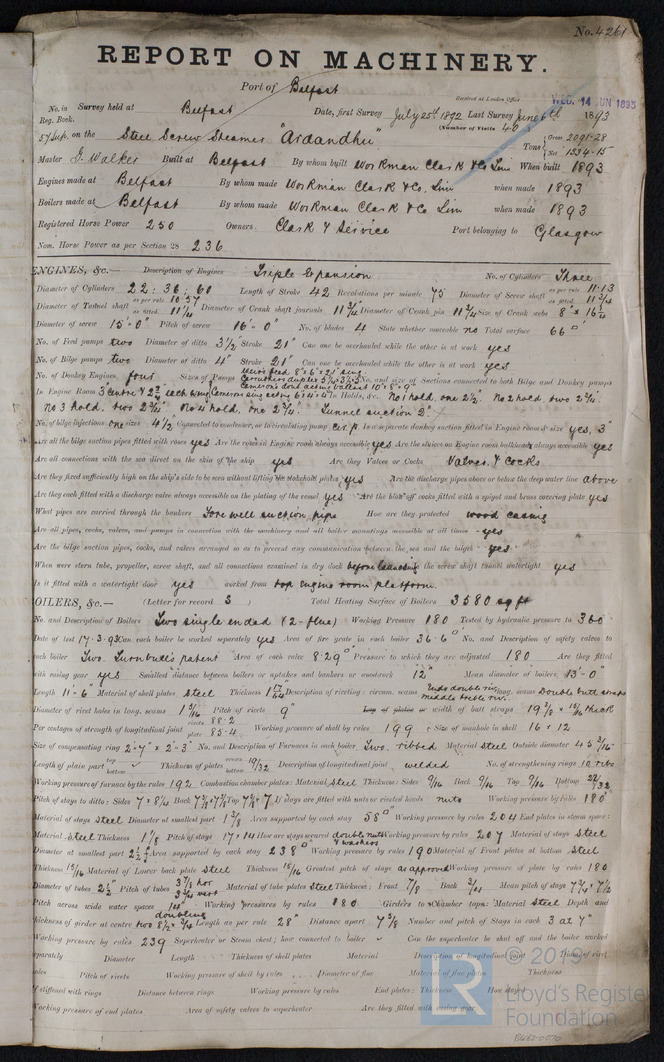 No. 4261
REPORT ON MACHINERY.
Port of Belfast
Received at London Office WED. 14 JUN 1893
No. in Survey held at Belfast Date, first Survey July 25th 1892 Last Survey June 6th 1893
Reg. Book. (Number of Visits 40)
on the Steel Screw Steamer "Ardandhu" Tons Gross 2091.28 Net 1334.15
Master J. Walker Built at Belfast By whom built Workman Clark & Co Lim When built 1893
Engines made at Belfast By whom made Workman Clark & Co. Lim when made 1893
Boilers made at Belfast By whom made Workman Clark & Co Lim when made 1893
Registered Horse Power 250 Owners Clark & Service Port belonging to Glasgow
Nom. Horse Power as per Section 28 236
ENGINES, &c.— Description of Engines Triple Expansion No. of Cylinders Three
Diameter of Cylinders 22 : 36 : 60 Length of Stroke 42 Revolutions per minute 75 Diameter of Screw shaft as per rule 11.13 as fitted 11 3/4
Diameter of Tunnel shaft as per rule 10.57 as fitted 11 1/4 Diameter of Crank shaft journals 11 3/4 Diameter of Crank pin 11 3/4 Size of Crank webs 8" x 16 1/2
Diameter of screw 15'-0" Pitch of screw 16'-0" No. of blades 4 State whether moveable no Total surface 66
No. of Feed pumps two Diameter of ditto 3 1/2 Stroke 21" Can one be overhauled while the other is at work yes
No. of Bilge pumps two Diameter of ditto 4" Stroke 21" Can one be overhauled while the other is at work yes
No. of Donkey Engines four Sizes of Pumps No. and size of Suctions connected to both Bilge and Donkey pumps
In Engine Room In Holds, &c. No 1 hold, one 2 1/2" No 2 hold two 2 3/4"
No 3 hold, two 2 3/4" No 4 hold, one 2 3/4" Tunnel suction 2"
No. of bilge injections one sizes 4 1/2 Connected to condenser, or to circulating pump cir. p. Is a separate donkey suction fitted in Engine room & size yes, 3"
Are all the bilge suction pipes fitted with roses yes Are the roses in Engine room always accessible yes Are the sluices on Engine room bulkheads always accessible yes
Are all connections with the sea direct on the skin of the ship yes Are they Valves or Cocks Valves & Cocks
Are they fixed sufficiently high on the ship's side to be seen without lifting the stokehold plates yes Are the discharge pipes above or below the deep water line above
Are they each fitted with a discharge valve always accessible on the plating of the vessel yes Are the blow off cocks fitted with a spigot and brass covering plate yes
What pipes are carried through the bunkers Fore well suction pipe How are they protected wood casing
Are all pipes, cocks, valves, and pumps in connection with the machinery and all boiler mountings accessible at all times yes
Are the bilge suction pipes, cocks, and valves arranged so as to prevent any communication between the sea and the bilges yes
When were stern tube, propeller, screw shaft, and all connections examined in dry dock before launching Is the screw shaft tunnel watertight yes
Is it fitted with a watertight door yes worked from top Engine room platform
BOILERS, &c.— (Letter for record S) Total Heating Surface of Boilers 3580 sq ft
No. and Description of Boilers Two single ended (2-flue) Working Pressure 180 Tested by hydraulic pressure to 360
Date of test 17.3.93 Can each boiler be worked separately yes Area of fire grate in each boiler 36.6 No. and Description of safety valves to
each boiler Two Turnbull's patent Area of each valve 8.29 Pressure to which they are adjusted 180 Are they fitted
with easing gear yes Smallest distance between boilers or uptakes and bunkers or woodwork 12" Mean diameter of boilers 13'-0"
Length 11'-6" Material of shell plates steel Thickness 1 17/64 Description of riveting : circum. seams Ends double riv. middle treble riv. long. seams Double butt straps
Diameter of rivet holes in long. seams 1 5/16 Pitch of rivets 9" Lap of plates or width of butt straps 19 3/8 x 15/16 thick
Per centages of strength of longitudinal joint rivets 88.2 plate 85.4 Working pressure of shell by rules 199 Size of manhole in shell 16 x 12
Size of compensating ring 2'-7" x 2'-3" No. and Description of Furnaces in each boiler Two ribbed Material steel Outside diameter 45 3/16"
Length of plain part top bottom Thickness of plates crown bottom 19/32 Description of longitudinal joint welded No. of strengthening rings 10 ribs
Working pressure of furnace by the rules 192 Combustion chamber plates : Material steel Thickness : Sides 9/16 Back 9/16 Top 9/16 Bottom 22/32
Pitch of stays to ditto : Sides 7 x 8 1/2 If stays are fitted with nuts or riveted heads nuts Working pressure by rules 180
Material of stays steel Diameter at smallest part 1 3/8 Area supported by each stay 58 Working pressure by rules 204 End plates in steam space :
Material steel Thickness 1 1/8 Pitch of stays 17 x 14 How are stays secured double nuts & washers Working pressure by rules 207 Material of stays steel
Diameter at smallest part 2 1/2 Area supported by each stay 238 Working pressure by rules 190 Material of Front plates at bottom steel
Thickness 15/16 Material of Lower back plate steel Thickness 15/16 Greatest pitch of stays as approved Working pressure of plate by rules 180
Diameter of tubes 2 1/2 Pitch of tubes 3 7/8 hor 3 3/4 vert Material of tube plates steel Thickness : Front 7/8 Back 3/4 Mean pitch of stays 7 3/4 x 7 1/2
Pitch across wide water spaces 14" doubling Working pressures by rules 180 Girders to Chamber tops : Material steel Depth and
thickness of girder at centre two 8 1/2 x 3/4 Length as per rule 28" Distance apart 7 3/8 Number and pitch of Stays in each 3 at 7"
Working pressure by rules 239 Superheater or Steam chest ; how connected to boiler Can the superheater be shut off and the boiler worked
separately Diameter Length Thickness of shell plates Material Description of longitudinal joint Diam. of rivet
holes Pitch of rivets Working pressure of shell by rules Diameter of flue Material of flue plates Thickness
If stiffened with rings Distance between rings Working pressure by rules End plates : Thickness How stayed
Working pressure of end plates Area of safety valves to superheater Are they fitted with easing gear
© 2019
LR
Lloyd's Register
Foundation